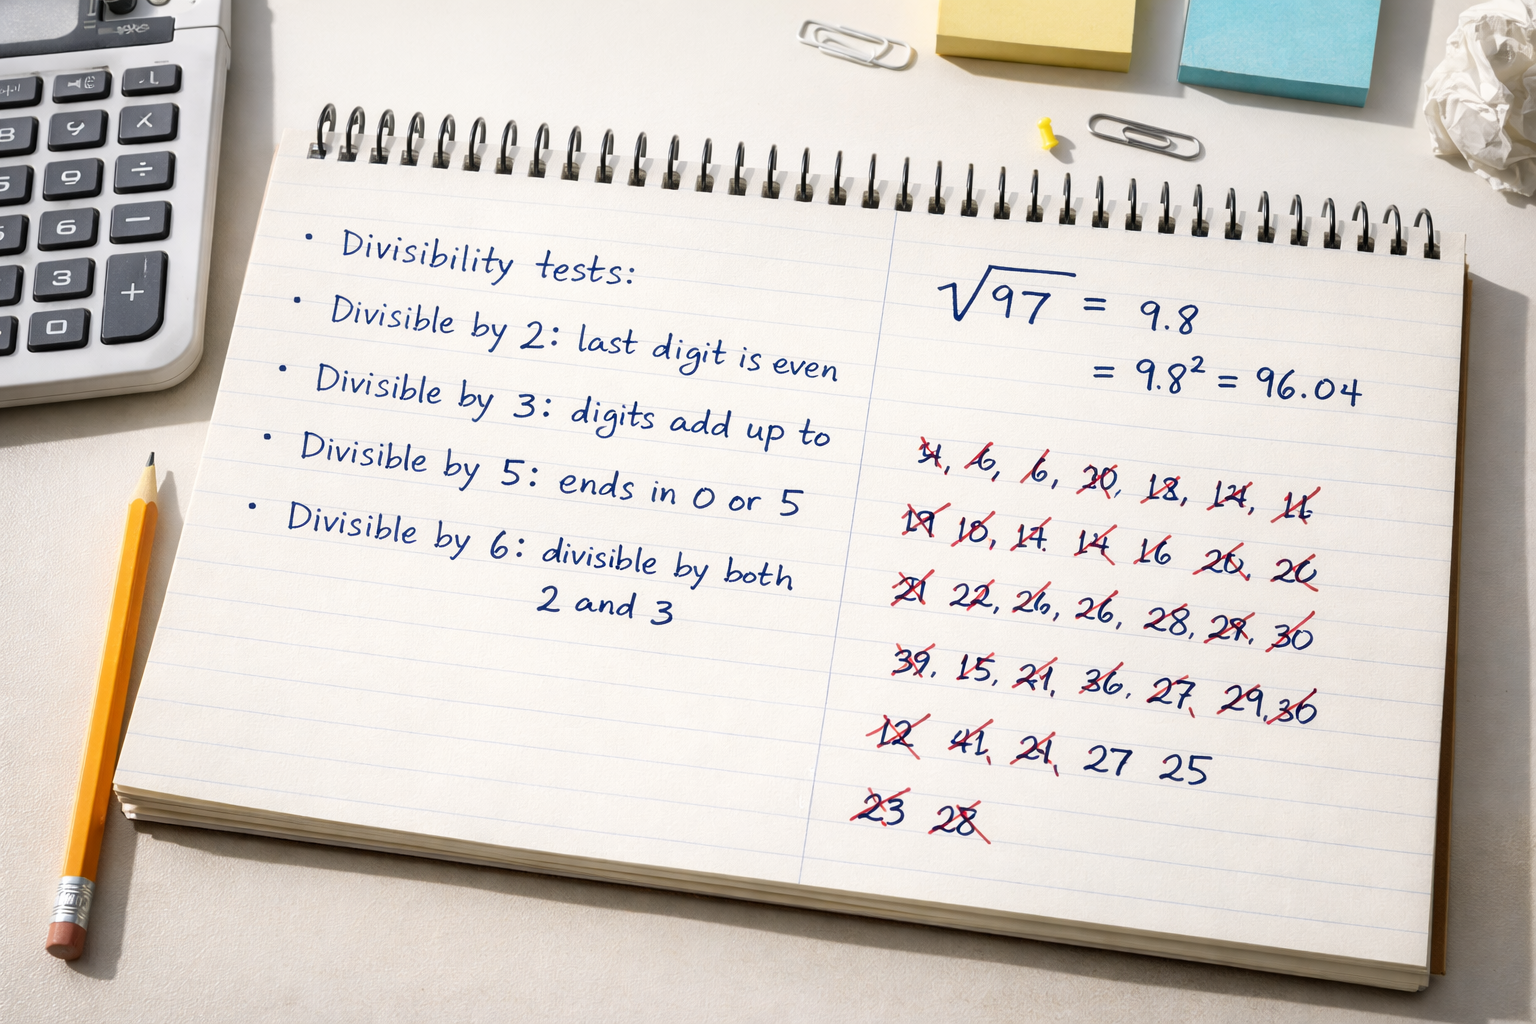 • Divisibility tests:
• Divisible by 2: last digit is even
• Divisible by 3: digits add up to
• Divisible by 5: ends in 0 or 5
• Divisible by 6: divisible by both
2 and 3
√97 = 9.8
= 9.8² = 96.04
6, 6, 18,
10, 14 16
21 22, 26, 26, 28, 30
39, 15, 21, 36, 27, 29, 36
12 41, 21, 27 25
23 28
×
÷
6 −
3 +
0